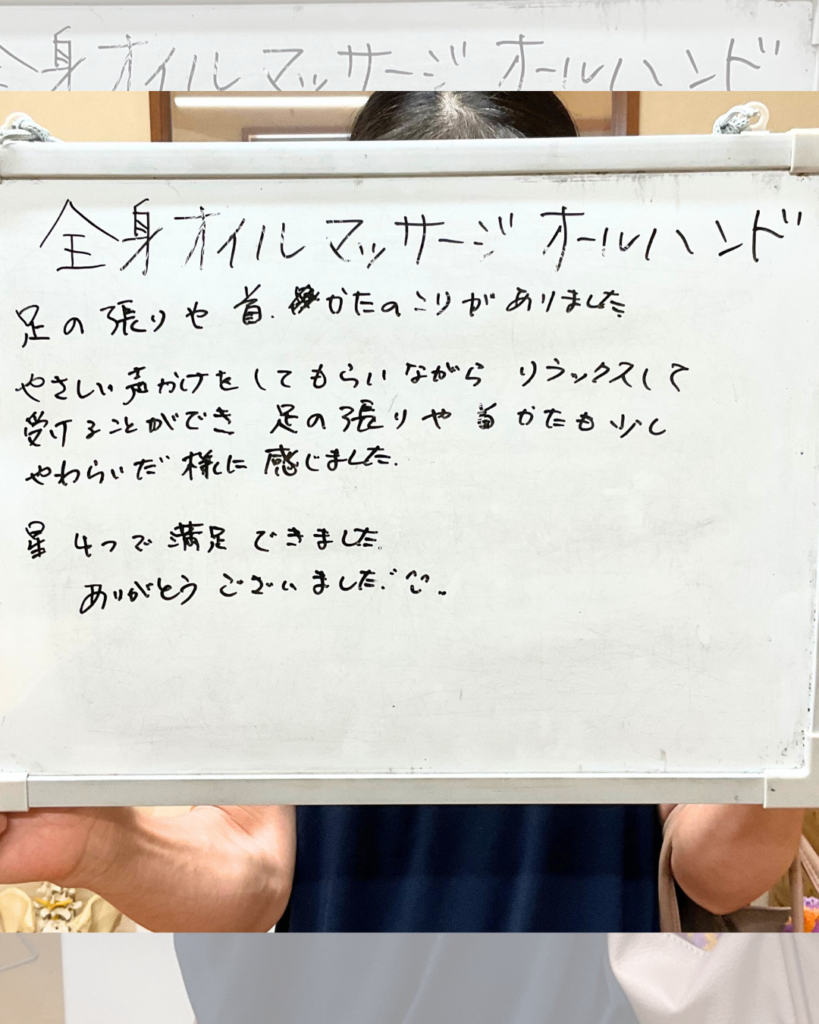 全身オイルマッサージ オールハンド
全身オイルマッサージ オールハンド
足の張りや 首. かたのこりがありました
やさしい声かけをしてもらいながら リラックスして
受けることができ 足の張りや 首かたも少し
やわらいだ様に感じました.
星 4つで満足できました.
ありがとうございました.^^